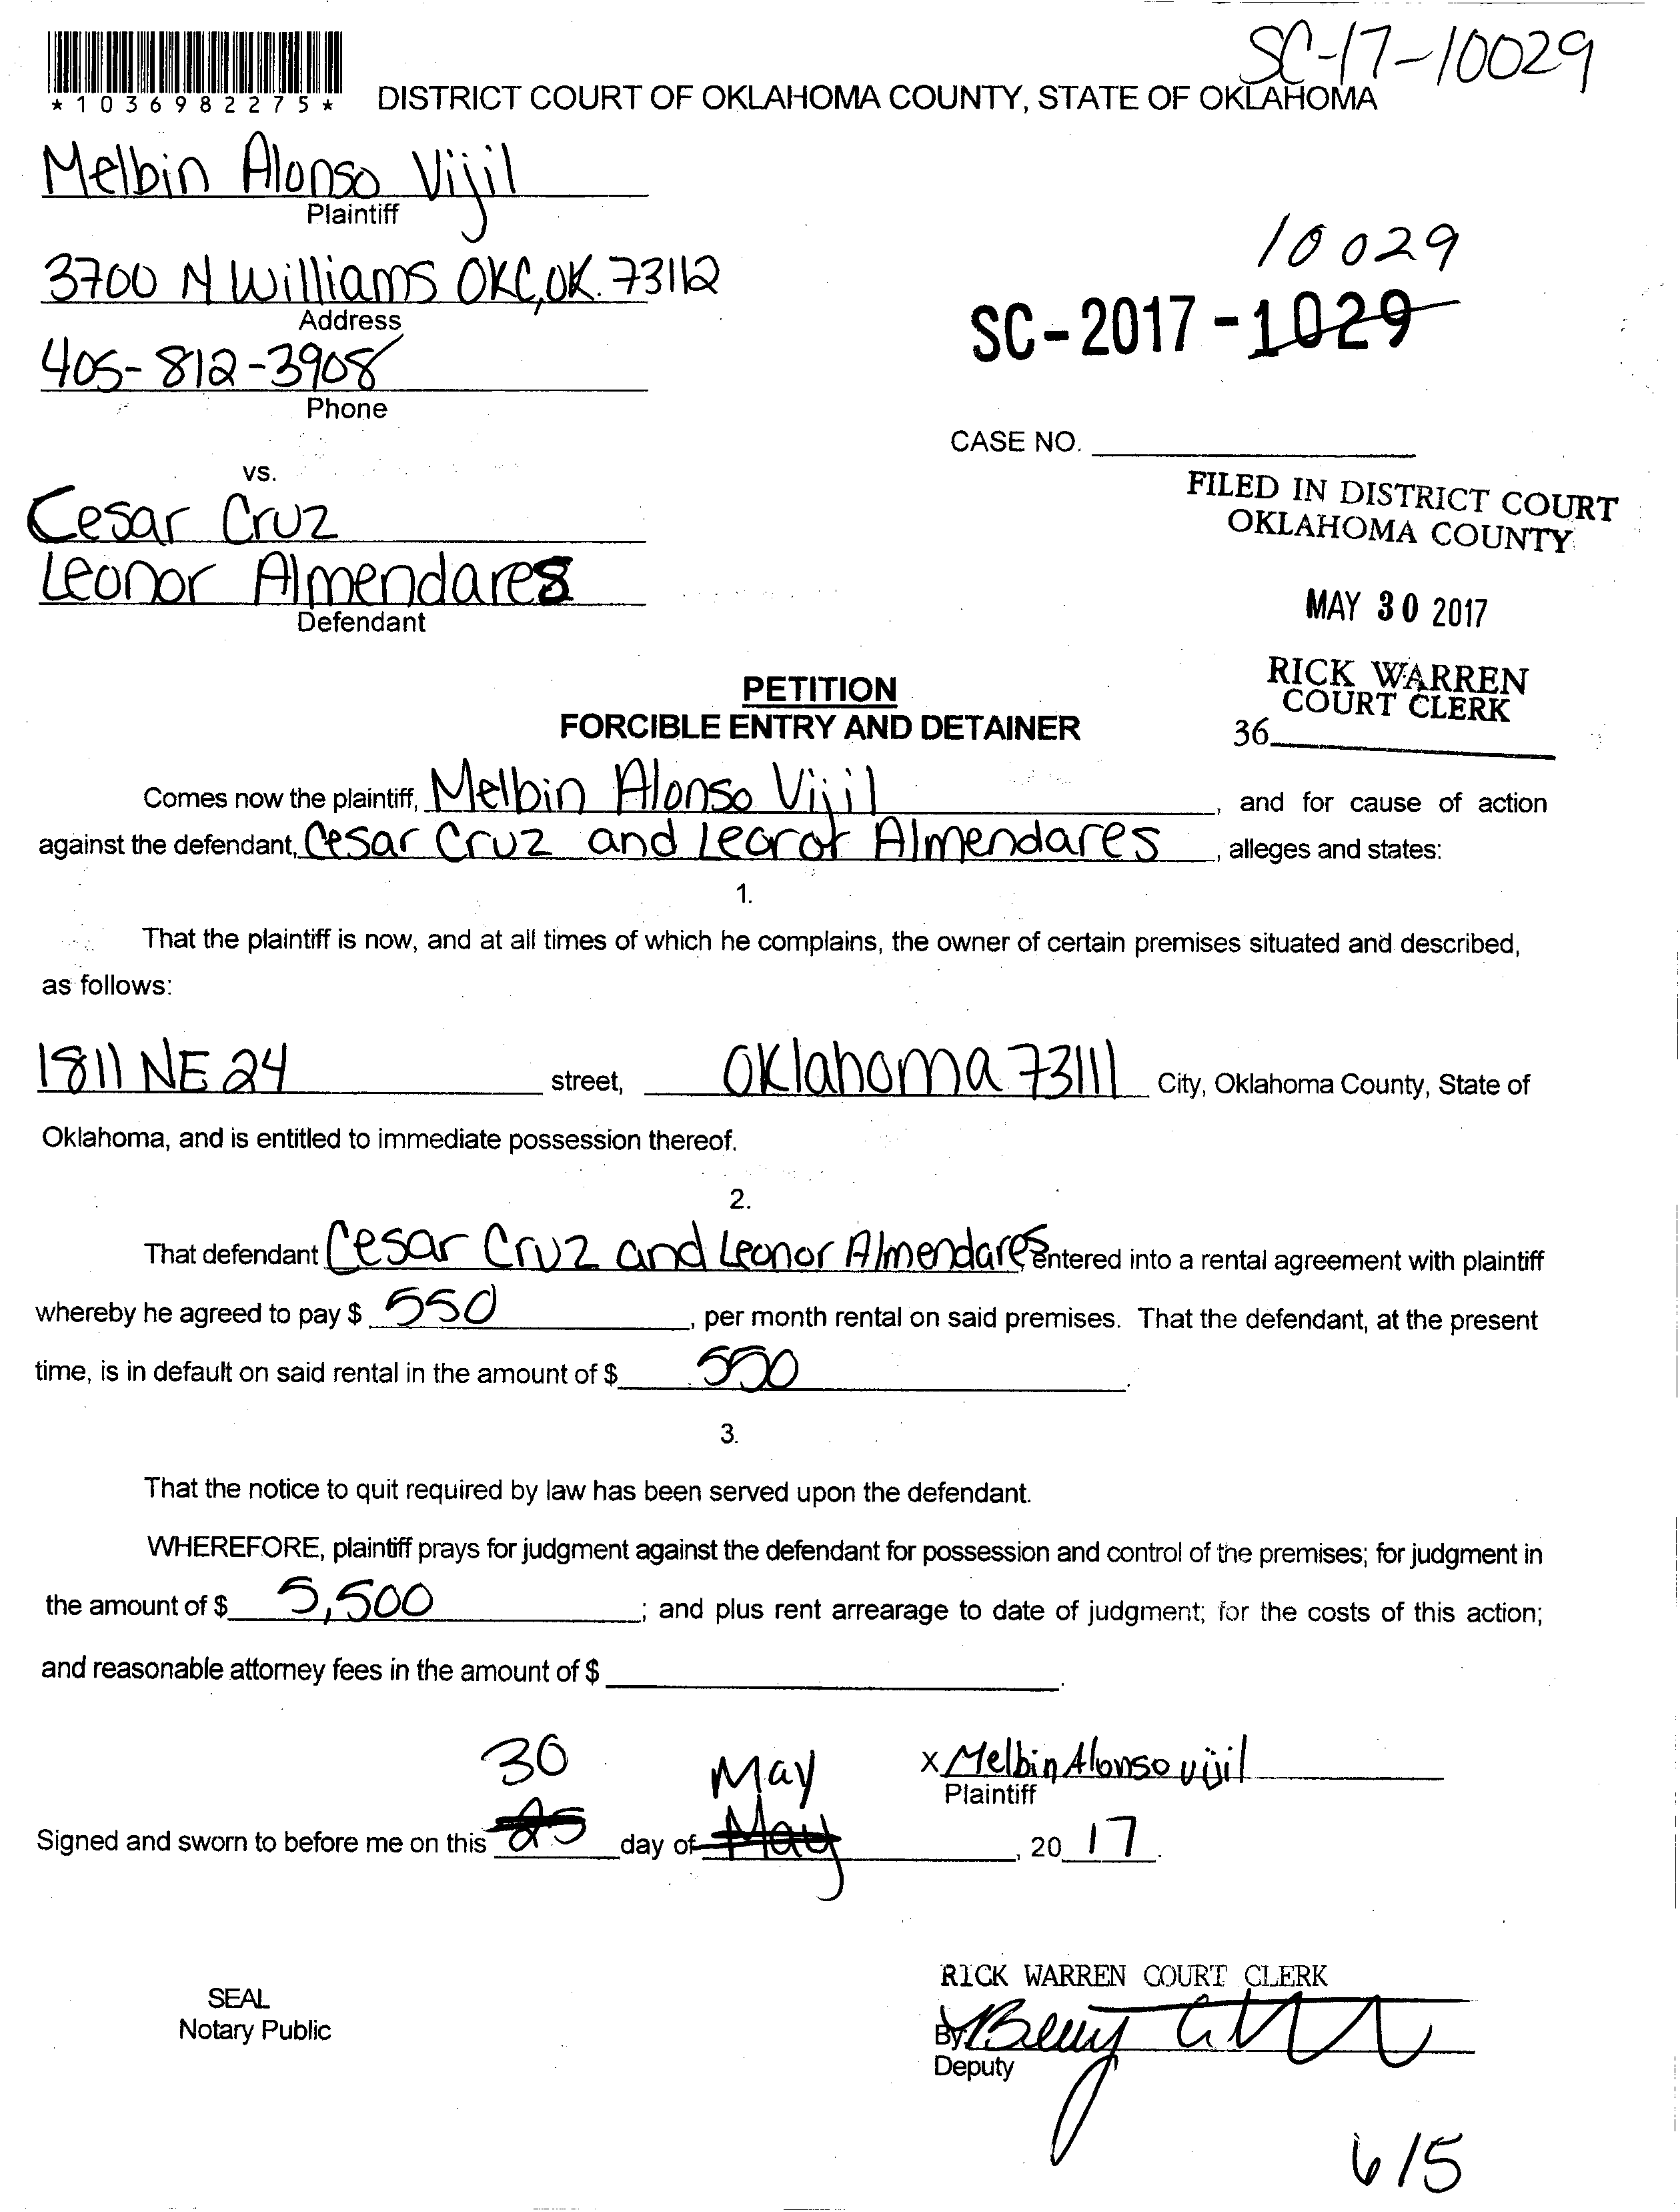 SC-17-10029
*1036982275*
DISTRICT COURT OF OKLAHOMA COUNTY, STATE OF OKLAHOMA
Melbin Alonso Vijil
Plaintiff
3700 N Williams OKC, OK. 73112
Address
405-812-3908
Phone
10029
SC-2017-1029
CASE NO.
vs.
Cesar Cruz
Leonor Almendares
Defendant
FILED IN DISTRICT COURT
OKLAHOMA COUNTY
MAY 30 2017
RICK WARREN
COURT CLERK
36
PETITION
FORCIBLE ENTRY AND DETAINER
Comes now the plaintiff, Melbin Alonso Vijil, and for cause of action
against the defendant, Cesar Cruz and Leoror Almendares, alleges and states:
1.
That the plaintiff is now, and at all times of which he complains, the owner of certain premises situated and described,
as follows:
1811 NE 24 street, Oklahoma 73111 City, Oklahoma County, State of
Oklahoma, and is entitled to immediate possession thereof.
2.
That defendant Cesar Cruz and Leonor Almendares entered into a rental agreement with plaintiff
whereby he agreed to pay $ 550, per month rental on said premises. That the defendant, at the present
time, is in default on said rental in the amount of $ 550.
3.
That the notice to quit required by law has been served upon the defendant.
WHEREFORE, plaintiff prays for judgment against the defendant for possession and control of the premises; for judgment in
the amount of $ 5,500; and plus rent arrearage to date of judgment; for the costs of this action;
and reasonable attorney fees in the amount of $.
x Melbin Alonso vijil
Plaintiff
30 May
Signed and sworn to before me on this 25 day of May, 20 17.
SEAL
Notary Public
RICK WARREN COURT CLERK
By
Deputy
6/5